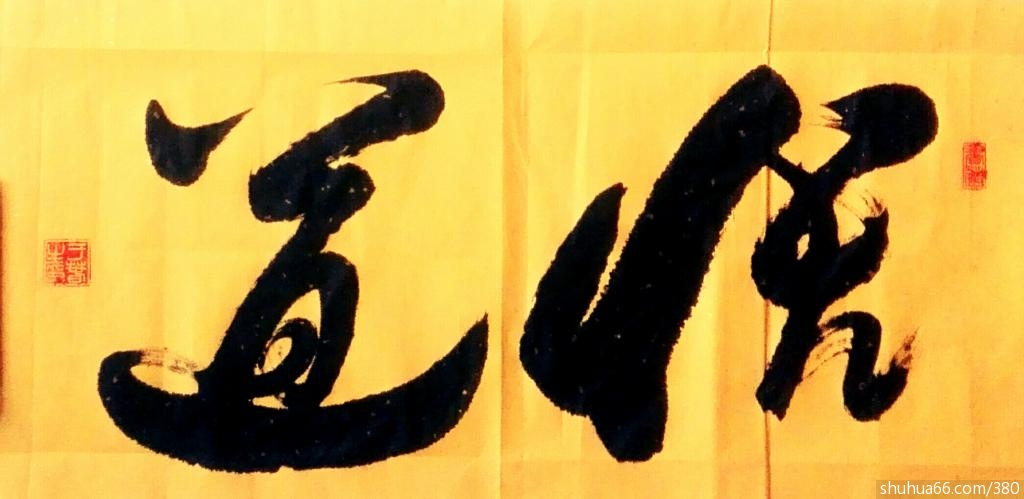 悟道
shuhua66.com/380